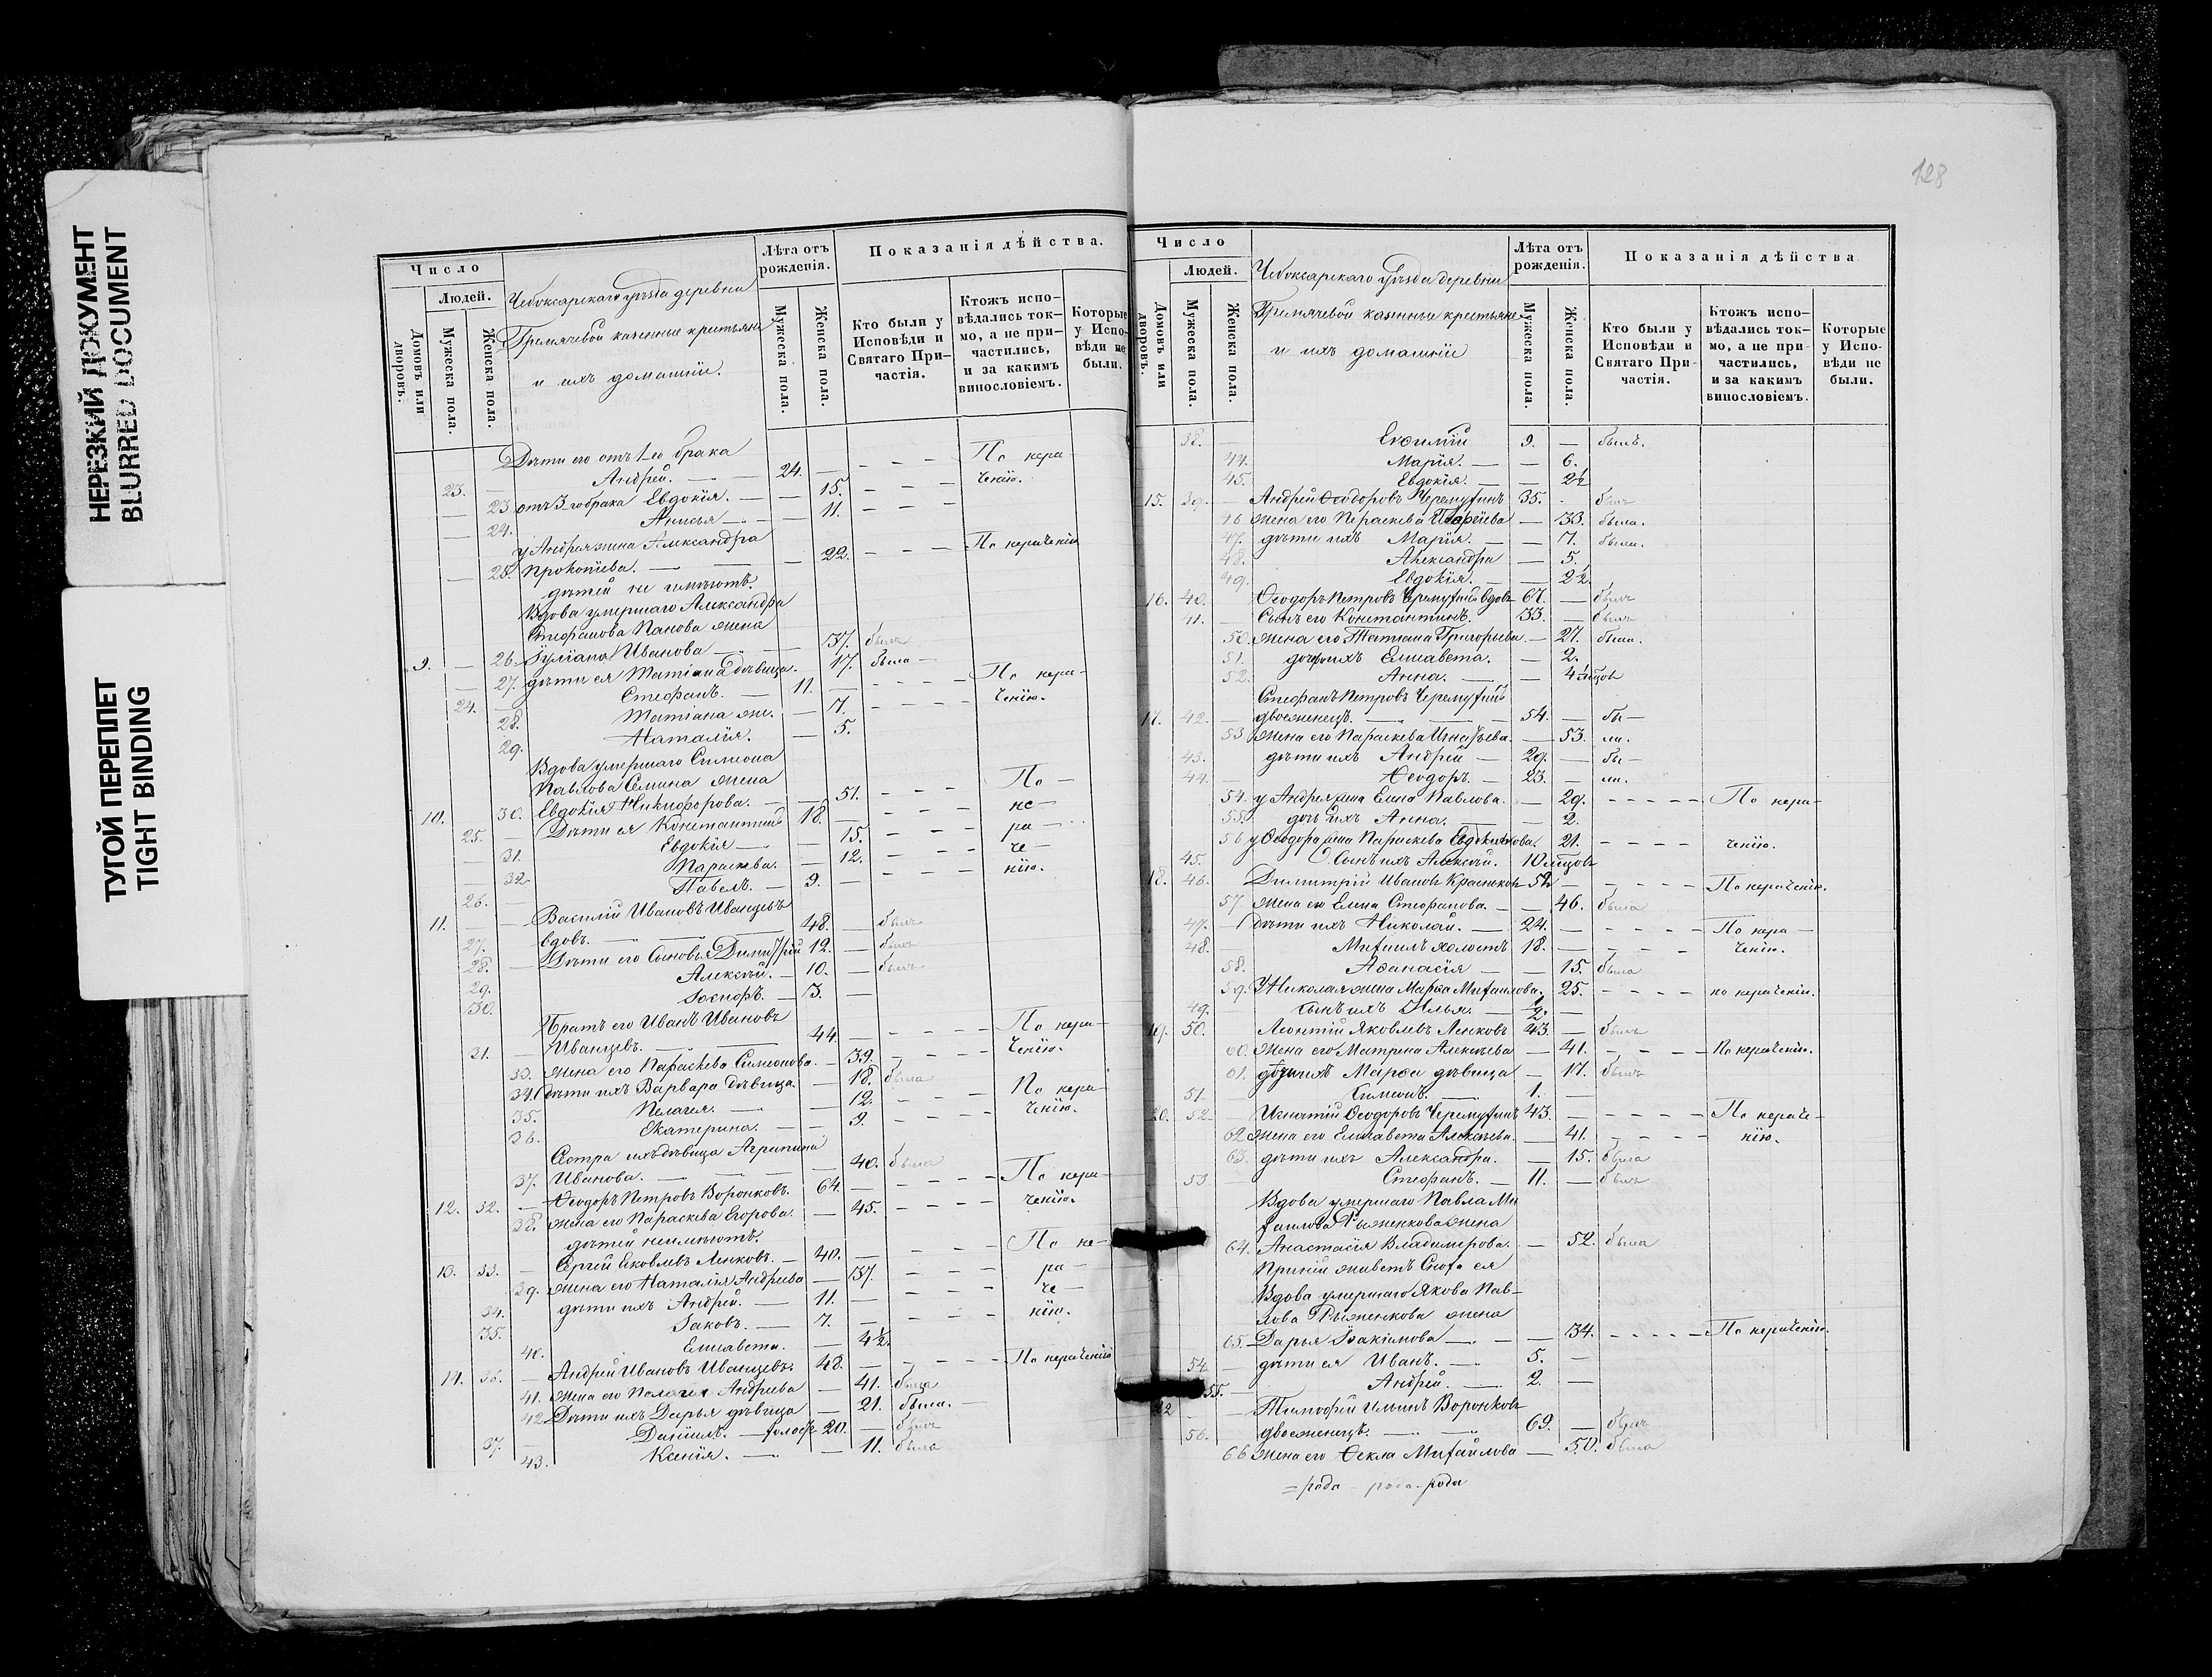 НЕРЕЗКИЙ ДОКУМЕНТ
BLURRED DOCUMENT
ТУГОЙ ПЕРЕПЛЕТ
TIGHT BINDING
Число
Людей.
Домовъ или дворовъ.
Мужеска пола.
Женска пола.
Чебоксарскаго уѣзда деревни
Гремячевой казенные крестьяне
и ихъ домашніи.
Лѣта отъ рожденія.
Мужеска пола.
Женска пола.
Показанія дѣйства.
Кто были у Исповѣди и Святаго Причастія.
Ктожъ исповѣдались токмо, а не причастились, и за какимъ винословіемъ.
Которые у Исповѣди не были.
Дѣти его отъ 1-го брака
23. — Андрей. — 24. — По нера-
23. отъ 3-го брака Евдокія. — 15. ченію.
24. Анисья — 11.
у Андрея жена Александра
25. Прокопіева. — 22. По нераченію
дѣтей не имѣютъ.
Вдова умершаго Александра
Стефанова Панова жена
9. — 26. Іуліана Иванова — 37. была
27. дѣти ея Татіана дѣвица. 17. была —
24. — Стефанъ. — 11. — По нера-
28. Татіана — 7. ченію.
29. Наталія. — 5.
Вдова умершаго Симеона
Павлова Семина жена
10. 30. Евдокія Никифорова. — 51. По —
25. — Дѣти ея Константинъ 18. — не —
31. Евдокія — 15. ра —
32. Параскева. — 12. че —
26. — Павелъ. — 9. — нію.
Василій Ивановъ Иванцевъ
11. 27. вдовъ. — 48. — былъ
28. — Дѣти его Сыновья Димитрій 12. — былъ
29. Алексѣй. — 10. — былъ
30. 3. —
Братъ его Иванъ Ивановъ
21. — Иванцевъ. — 44. — По нера-
33. жена его Параскева Симеонова. — 39. ченію.
34. дѣти ихъ Варвара дѣвица. — 18. была
35. Пелагея. — 12. По нера-
36. Екатерина. — 9. ченію.
Сестра ихъ дѣвица Агрипина
37. Иванова. — 40. была
12. 32. — Ѳеодоръ Петровъ Воронковъ. 64. — По нера-
38. жена его Параскева Егорова. — 45. ченію.
дѣтей неимѣютъ.
13. 33. — Сергѣй Яковлевъ Ленковъ. — 40. — По не-
39. жена его Наталія Андреева — 37. ра —
34. дѣти ихъ Андрей. — 11. — че —
35. Іаковъ. — 7. — нію.
40. Елисавета. — 4½
14. 36. — Андрей Ивановъ Иванцевъ. 48. — По нераченію
41. жена его Пелагея Андреева — 41. была
42. Дѣти ихъ Дарья дѣвица — 21. была. —
37. — Даніилъ. — холостъ 20. — былъ
43. Ксенія. — 11. была
128
Число
Людей.
Домовъ или дворовъ.
Мужеска пола.
Женска пола.
Чебоксарскаго уѣзда деревни
Гремячевой казенные крестьяне
и ихъ домашніи
Лѣта отъ рожденія.
Мужеска пола.
Женска пола.
Показанія дѣйства
Кто были у Исповѣди и Святаго Причастія.
Ктожъ исповѣдались токмо, а не причастились, и за какимъ винословіемъ.
Которые у Исповѣди не были.
38. — Евѳимій 9. — былъ.
44. Марія. — 6.
45. Евдокія. — 2½
15. 39. — Андрей Ѳеодоровъ Черемухинъ 35. былъ
46. жена его Параскева — 33. была.
47. дѣти ихъ Марія. — 7. была.
48. Александра — 5.
49. Евдокія. — 2½
16. 40. Ѳеодоръ Петровъ Черемухинъ вдовъ 67. — былъ
41. Сынъ его Константинъ. 33. — былъ
50. жена его Татіана Григорьева — 27. была.
51. дочери ихъ Елисавета. — 2.
52. Анна. — 4 мѣсцов
Стефанъ Петровъ Черемухинъ
17. 42. — двоеженецъ. — 54. — бы —
53. жена его Параскева Игнатьева. — 53. ли.
43. дѣти ихъ Андрей — 29. — бы —
44. — Ѳеодоръ. — 23. — ли.
54. у Андрея жена Елена Павлова. — 29. По нера-
55. дочь ихъ Анна. — 2.
56 у Ѳеодора жена Параскева Евдокимова. 21. ченію.
45. Сынъ ихъ Алексѣй. 10 мѣсцов
18. 46. Димитрій Ивановъ 52 — По нераченію.
57 жена его Елена Стефанова. — 46. была
47. — дѣти ихъ Николай. — 24. — По нера —
48. Михаилъ холостъ 18. — ченію.
58. Аѳанасія — 15. была
59. У Николая жена Марѳа Михаилова. 25. по нераченію.
49. — Сынъ ихъ Илья. — ½. —
19. 50. Леонтій Яковлевъ Ленковъ 43. — былъ
60. жена его Матрена Алексѣева — 41. — По нераченію.
61. дѣти ихъ Марѳа дѣвица — 17. была
51. Симеонъ. — 1. —
20. 52. — Игнатій Ѳеодоровъ Черемухинъ 43. — По нераче-
62 жена его Елисавета Алексѣева. — 41. нію.
63. дѣти ихъ Александра. — 15. была
53 — Стефанъ. — 11. — былъ
Вдова умершаго Павла Ми
хаилова Рыженкова жена
64. Анастасія Владимирова. — 52. была
При ней живетъ Сноха ея
Вдова умершаго Якова Пав-
лова Рыженкова жена
65. Дарья Іоакимова — 34. По нераченію.
54. — дѣти ея Иванъ. — 5. —
55. — Андрей. — 2. —
22 — Тимофей Ильинъ Воронковъ
56. двоеженецъ. — 69. — былъ
66 жена его Ѳекла Михайлова — 50. была
= рода рода